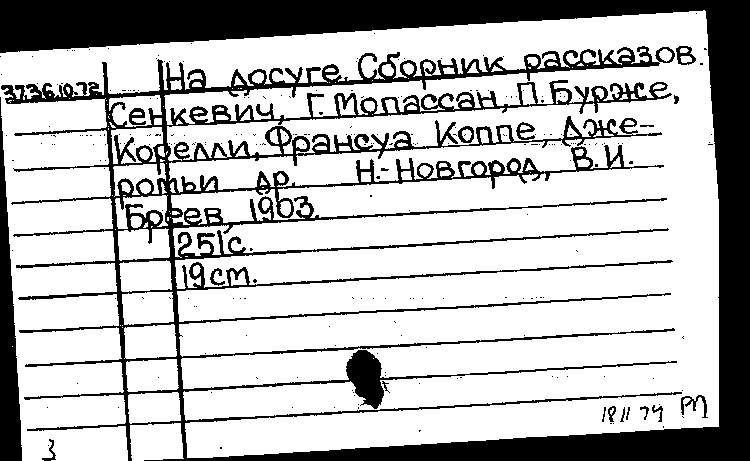 3736.10.72
На досуге. Сборник рассказов.
Сенкевич, Г. Мопассан, П. Бурже,
Корелли, Франсуа Коппе, Дже-
ротьи др. Н.-Новгород, В.И.
Бреев, 1903.
251с.
19см.
18 11 74 РП
3